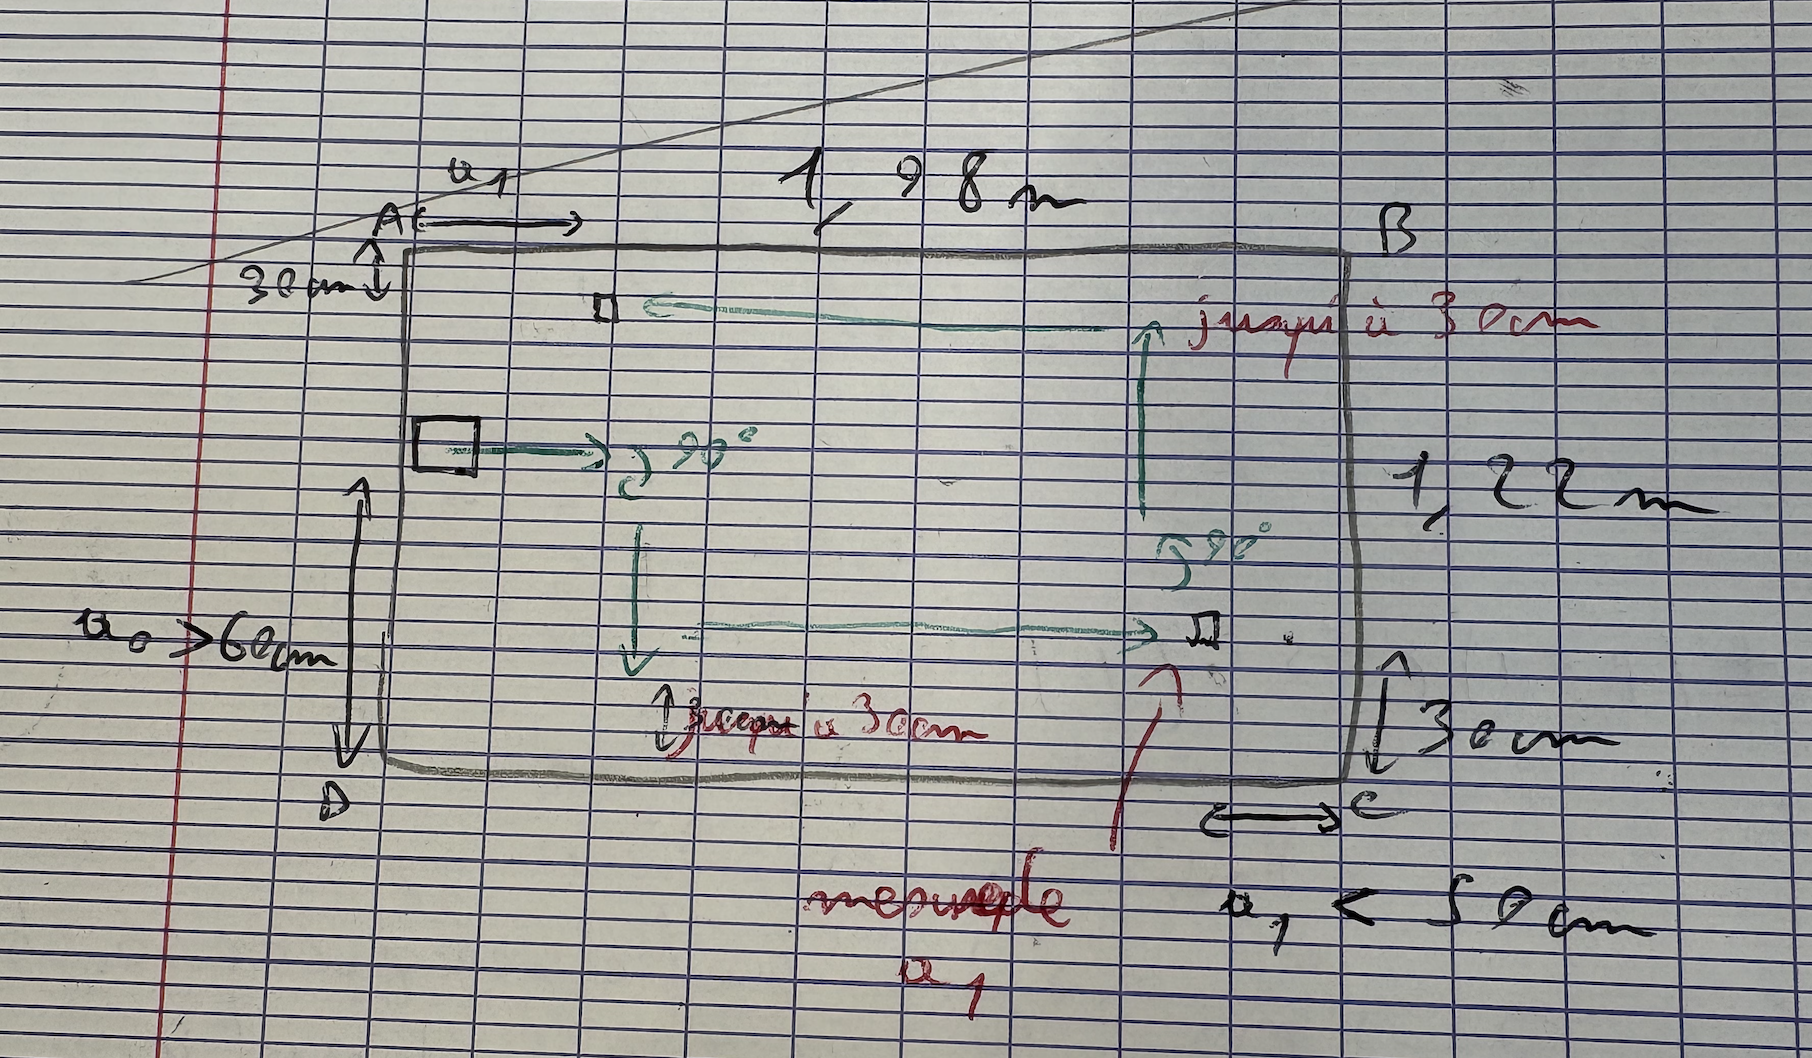 x₁
1,98 m
A
B
30cm
jusqu'à 30cm
90°
1,22 m
90°
x₀ > 60cm
jusqu'à 30cm
30cm
D
C
mesure de
x₁
x₁ < 50cm